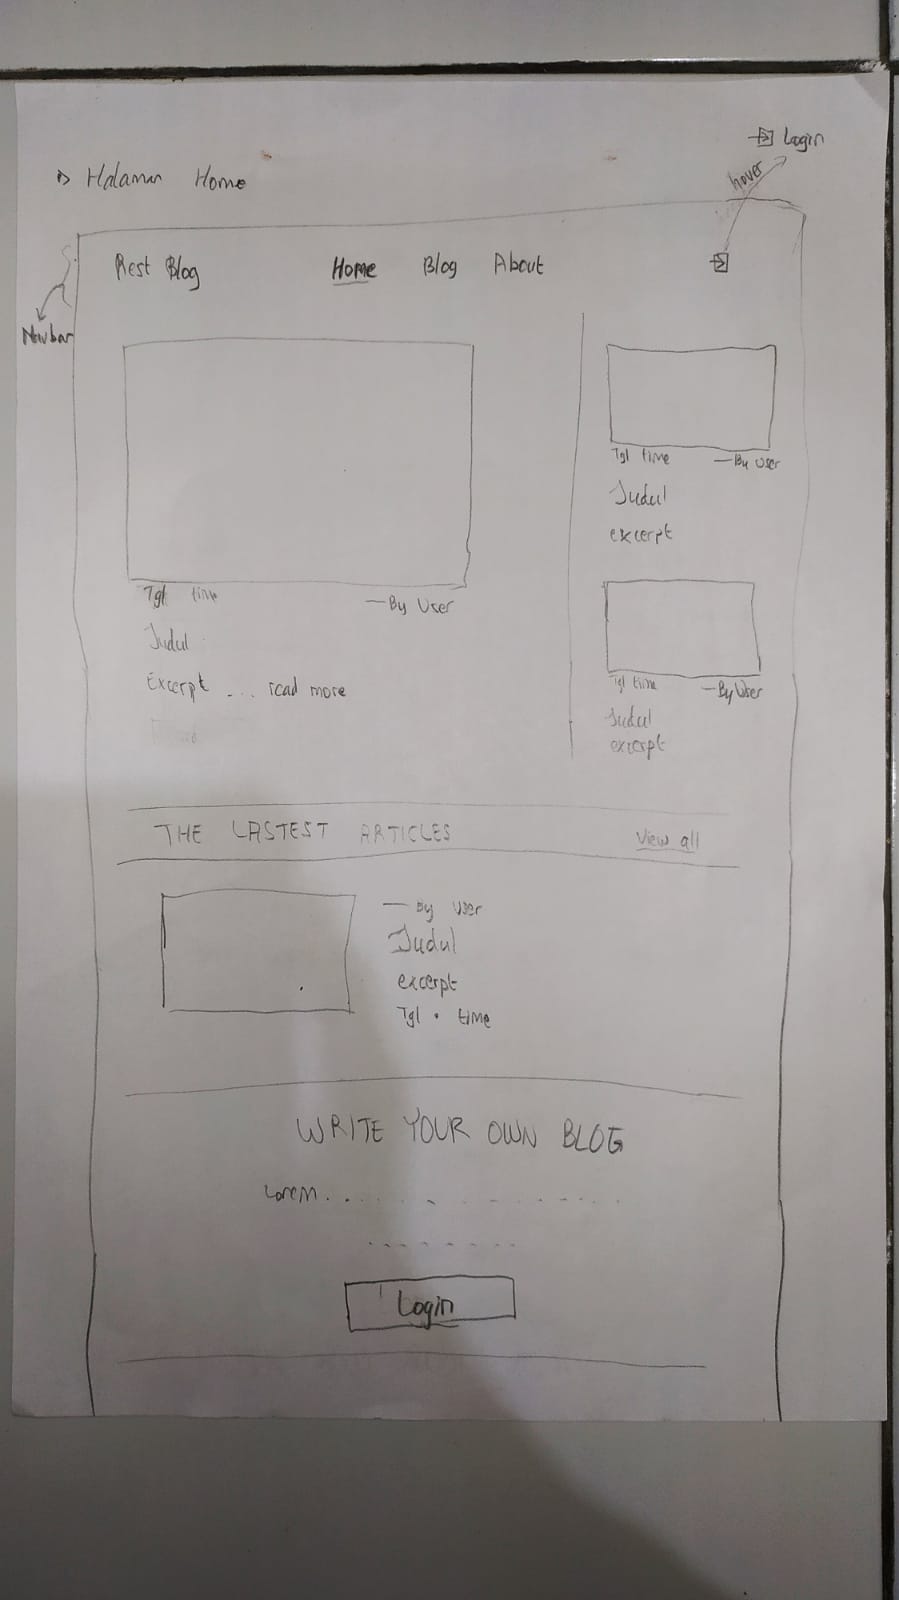 Login
hover
Halaman Home
Rest Blog Home Blog About
Navbar
Tgl time —By User
Judul
excerpt
Tgl time —By User
Judul
Excerpt ... read more
Tgl time —By User
Judul
excerpt
THE LASTEST ARTICLES View all
— By User
Judul
excerpt
Tgl • time
WRITE YOUR OWN BLOG
Lorem . . . . . . . . . . . .
Login